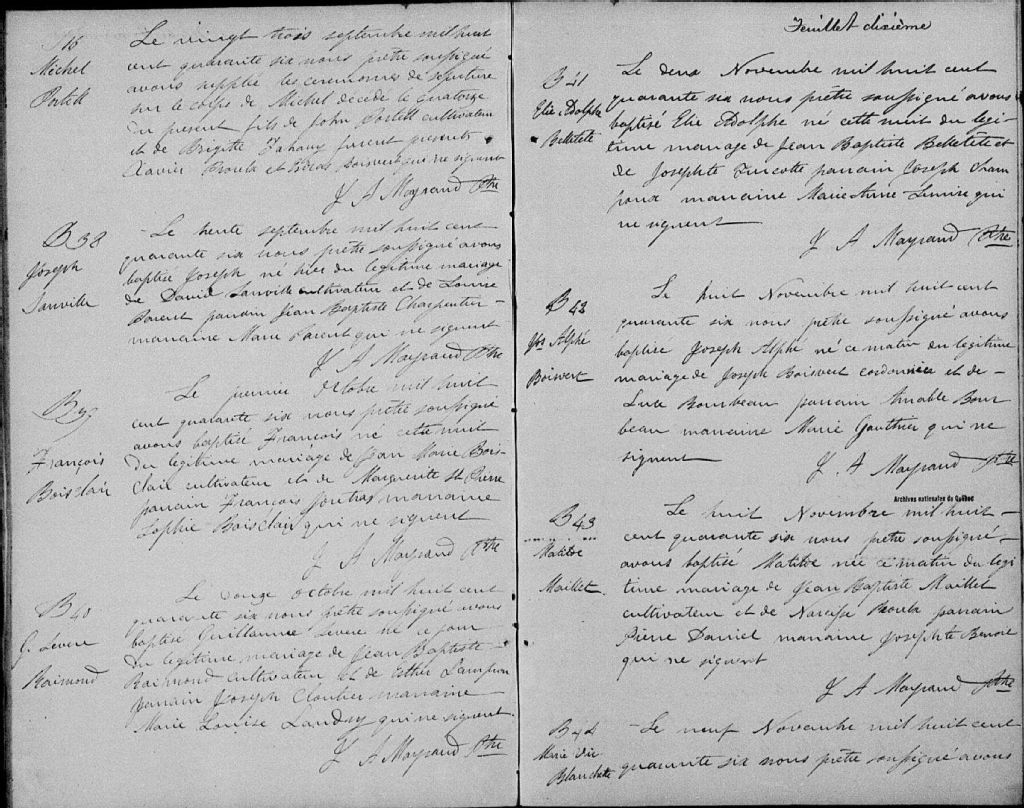 S 16
Michel
Portell
Le vingt trois septembre mil huit
cent quarante six nous prêtre soussigné
avons supplée les ceremonies de sepulture
sur le corps de Michel décédé le quatorze
du present fils de John Portell cultivateur
et de Brigitte furent presents
Xavier Proulx et Boisvert qui ne signent
J A Mayrand Ptre
B 38
Joseph
Janville
Le trente septembre mil huit cent
quarante six nous prêtre soussigné avons
baptisé Joseph né hier du legitime mariage
de David Janville cultivateur et de Louise
Parent parrain Jean Baptiste Charpentier
marraine Marie Parent qui ne signent
J A Mayrand Ptre
B 39
François
Boisclair
Le premier Octobre mil huit
cent quarante six nous prêtre soussigné
avons baptisé François né cette nuit
du legitime mariage de Jean Marie Bois-
clair cultivateur et de Marguerite St Pierre
parrain François Joutras marraine
Sophie Boisclair qui ne signent
J A Mayrand Ptre
B 40
G. Severe
Raimond
Le onze Octobre mil huit cent
quarante six nous prêtre soussigné avons
baptisé Guillaume Severe né ce jour
du legitime mariage de Jean Baptiste
Raimond cultivateur et de Esther Lampron
parrain Joseph Cloutier marraine
Marie Louise Landry qui ne signent
J A Mayrand Ptre
Feuillet dixième
B 41
Elie Adolphe
Belletete
Le deux Novembre mil huit cent
quarante six nous prêtre soussigné avons
baptisé Elie Adolphe né cette nuit du legi
time mariage de Jean Baptiste Belletete et
de Josephte Turcotte parrain Joseph
marraine Marie Anne qui
ne signent
J A Mayrand Ptre
B 42
Jos Alphé
Boisvert
Le huit Novembre mil huit cent
quarante six nous prêtre soussigné avons
baptisé Joseph Alphé né ce matin du legitime
mariage de Joseph Boisvert cordonnier et de
Luce Bourbeau parrain Amable Bour
beau marraine Marie Gauthier qui ne
signent
J A Mayrand Ptre
Archives nationales du Québec
B 43
Matilde
Maillet
Le huit Novembre mil huit
cent quarante six nous prêtre soussigné
avons baptisé Matilde née ce matin du legi
time mariage de Jean Baptiste Maillet
cultivateur et de Narcisse Houle parrain
Pierre Daniel marraine Josephte Benoit
qui ne signent
J A Mayrand Ptre
B 44
Marie
Blanchette
Le neuf Novembre mil huit cent
quarante six nous prêtre soussigné avons